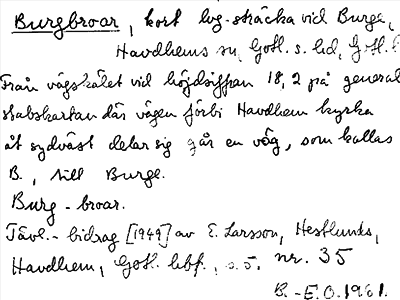 Burgbroar, kort vägsträcka vid Burge,
Havdhems sn, Gotl. s. hd, Gotl. l
Från vägskälet vid höjdsiffran 18,2 på general
stabskartan där vägen förbi Havdhem kyrka
åt sydväst delar sig går en väg, som kallas
B., till Burge.
Burg-broar.
Tävl.-bidrag [1949] av E. Larsson, Hestlunds,
Havdhem, Gotl. hbf., s. 5. nr. 35
B.-E.O. 1961.